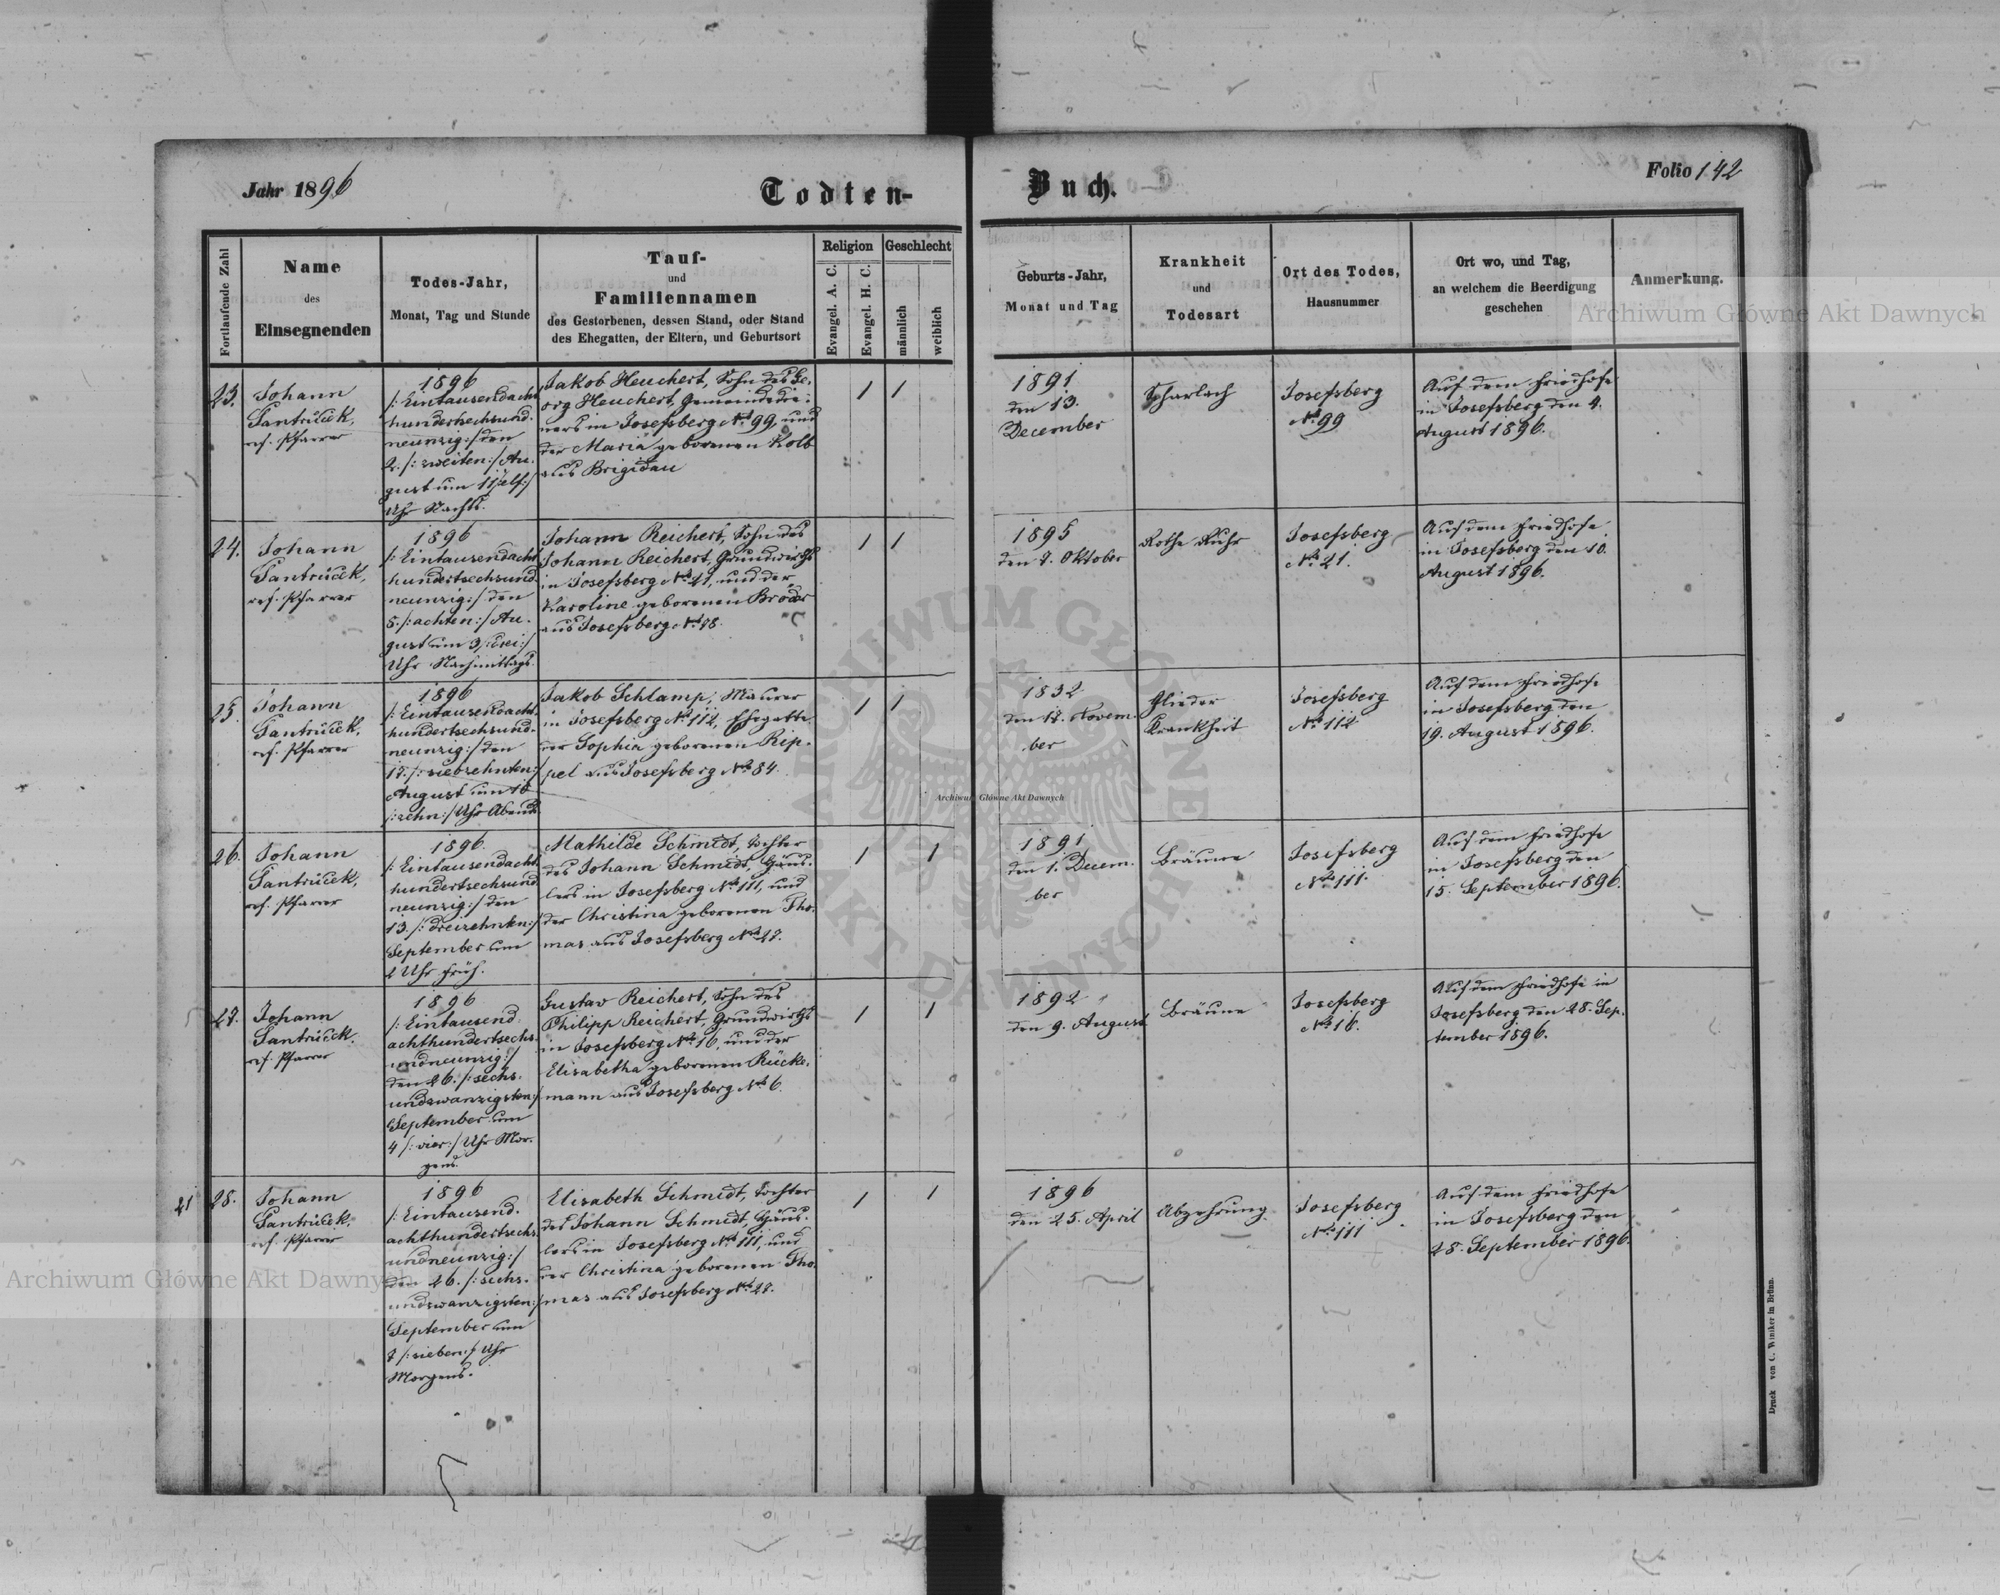 Jahr 1896
Todten-
Buch.
Folio 142
Fortlaufende Zahl
Name
des
Einsegnenden
Todes-Jahr,
Monat, Tag und Stunde
Tauf-
und
Familiennamen
des Gestorbenen, dessen Stand, oder Stand
des Ehegatten, der Eltern, und Geburtsort
Religion
Evangel. A. C.
Evangel. H. C.
Geschlecht
männlich
weiblich
Geburts-Jahr,
Monat und Tag
Krankheit
und
Todesart
Ort des Todes,
Hausnummer
Ort wo, und Tag,
an welchem die Beerdigung
geschehen
Anmerkung.
23.
Johann
Jantrücek,
ref. Pfarrer
1896
/: Eintausendacht-
hundertsechsund-
neunzig :/ den
2. /: zweiten :/ Au-
gust um 11 /: elf :/
Uhr Nachts.
Jakob Heuchert, Sohn des Ge-
org Heuchert, Gemeindedie-
ners in Josefsberg No 99, und
der Maria geborenen Kolb
aus Brigidau
/
/
1891
den 13.
December
Scharlach
Josefsberg
No 99
Auf dem Friedhofe
in Josefsberg den 4.
August 1896.
24.
Johann
Jantrücek,
ref. Pfarrer
1896
/: Eintausendacht-
hundertsechsund-
neunzig :/ den
/: achten :/ Au-
gust um 3 /: drei :/
Uhr Nachmittags.
Johann Reichert, Sohn des
Johann Reichert, Grundwirths
in Josefsberg No 21, und der
Karoline geborenen Broder
aus Josefsberg No
/
/
1895
den Oktober
Rothe Ruhr
Josefsberg
No 21.
Auf dem Friedhofe
in Josefsberg den 10.
August 1896.
25.
Johann
Jantrücek,
ref. Pfarrer
1896
/: Eintausendacht-
hundertsechsund-
neunzig :/ den
17. /: siebzehnten :/
August um 10
/: zehn :/ Uhr Abends
Jakob Schlamp, Maurer
in Josefsberg No 112, Ehegatte
der Sophia geborenen Rip-
pel aus Josefsberg No 84.
/
/
1832
den Novem-
ber
Glieder
Krankheit
Josefsberg
No 112
Auf dem Friedhofe
in Josefsberg den
19. August 1896.
26.
Johann
Jantrücek,
ref. Pfarrer
1896.
/: Eintausendacht-
hundertsechsund-
neunzig :/ den
13. /: dreizehnten :/
September um
Uhr früh.
Mathilde Schmidt, Tochter
des Johann Schmidt, Häus-
lers in Josefsberg No 111, und
der Christina geborenen Tho-
mas aus Josefsberg No 27.
/
/
1891
den 1. Decem-
ber
Bräune
Josefsberg
No 111.
Auf dem Friedhofe
in Josefsberg den
15. September 1896.
27.
Johann
Jantrücek.
ref. Pfarrer
1896
/: Eintausend
achthundertsechs-
undneunzig :/
den 26. /: sechs-
undzwanzigsten :/
September um
4 /: vier :/ Uhr Mor-
gens.
Gustav Reichert, Sohn des
Philipp Reichert, Grundwirths
in Josefsberg No 16, und der
Elisabetha geborenen Rücke-
mann aus Josefsberg No 6.
/
/
1892
den 9. August
Bräune
Josefsberg
No 16.
Auf dem Friedhofe in
Josefsberg den 28. Sep-
tember 1896.
21
28.
Johann
Jantrücek,
ref. Pfarrer
1896
/: Eintausend-
achthundertsechs-
undneunzig :/
den 26. /: sechs-
undzwanzigsten :/
September um
7 /: sieben :/ Uhr
Morgens.
Elisabeth Schmidt, Tochter
des Johann Schmidt, Häus-
lers in Josefsberg No 111, und
der Christina geborenen Tho-
mas aus Josefsberg No 27.
/
/
1896
den 25. April
Abzehrung
Josefsberg
No 111
Auf dem Friedhofe
in Josefsberg den
28. September 1896.
Druck von C. Winiker in Brünn.
Archiwum Główne Akt Dawnych
Archiwum Główne Akt Dawnych
Archiwum Główne Akt Dawnych
ARCHIWUM GŁÓWNE AKT DAWNYCH